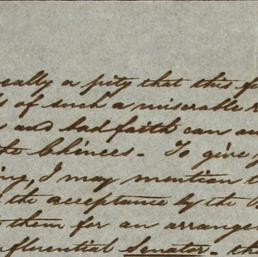 eally a pity that this f
s of such a miserable
s and bad faith can a
te Chinces - To give
ing, I may mention t
the acceptance by the
t them for an arrange
nfluential Senator - th